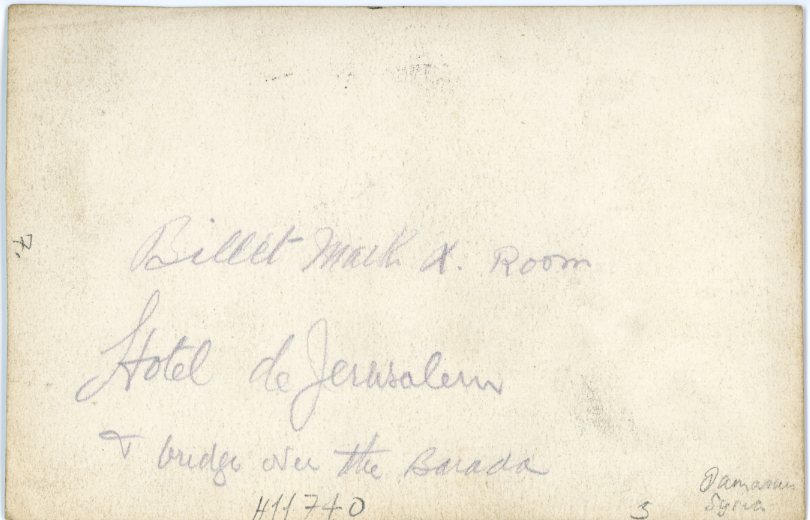 Billet Mark X. Room
Hotel de Jerusalem
& bridge over the Barada
H11740
3
Damascus
Syria